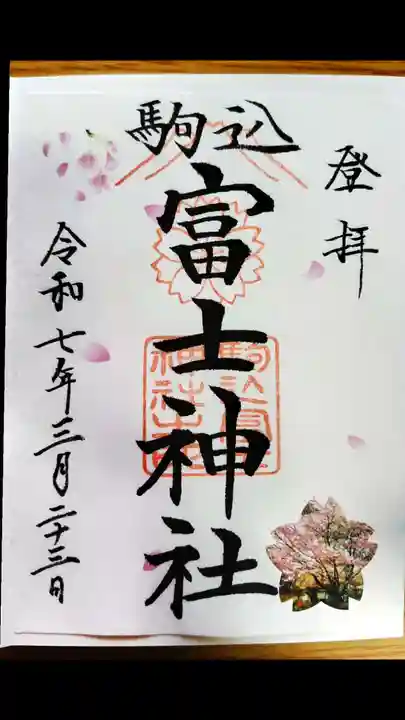 登拝
駒込
富士神社
令和七年三月二十三日
駒込富
神社